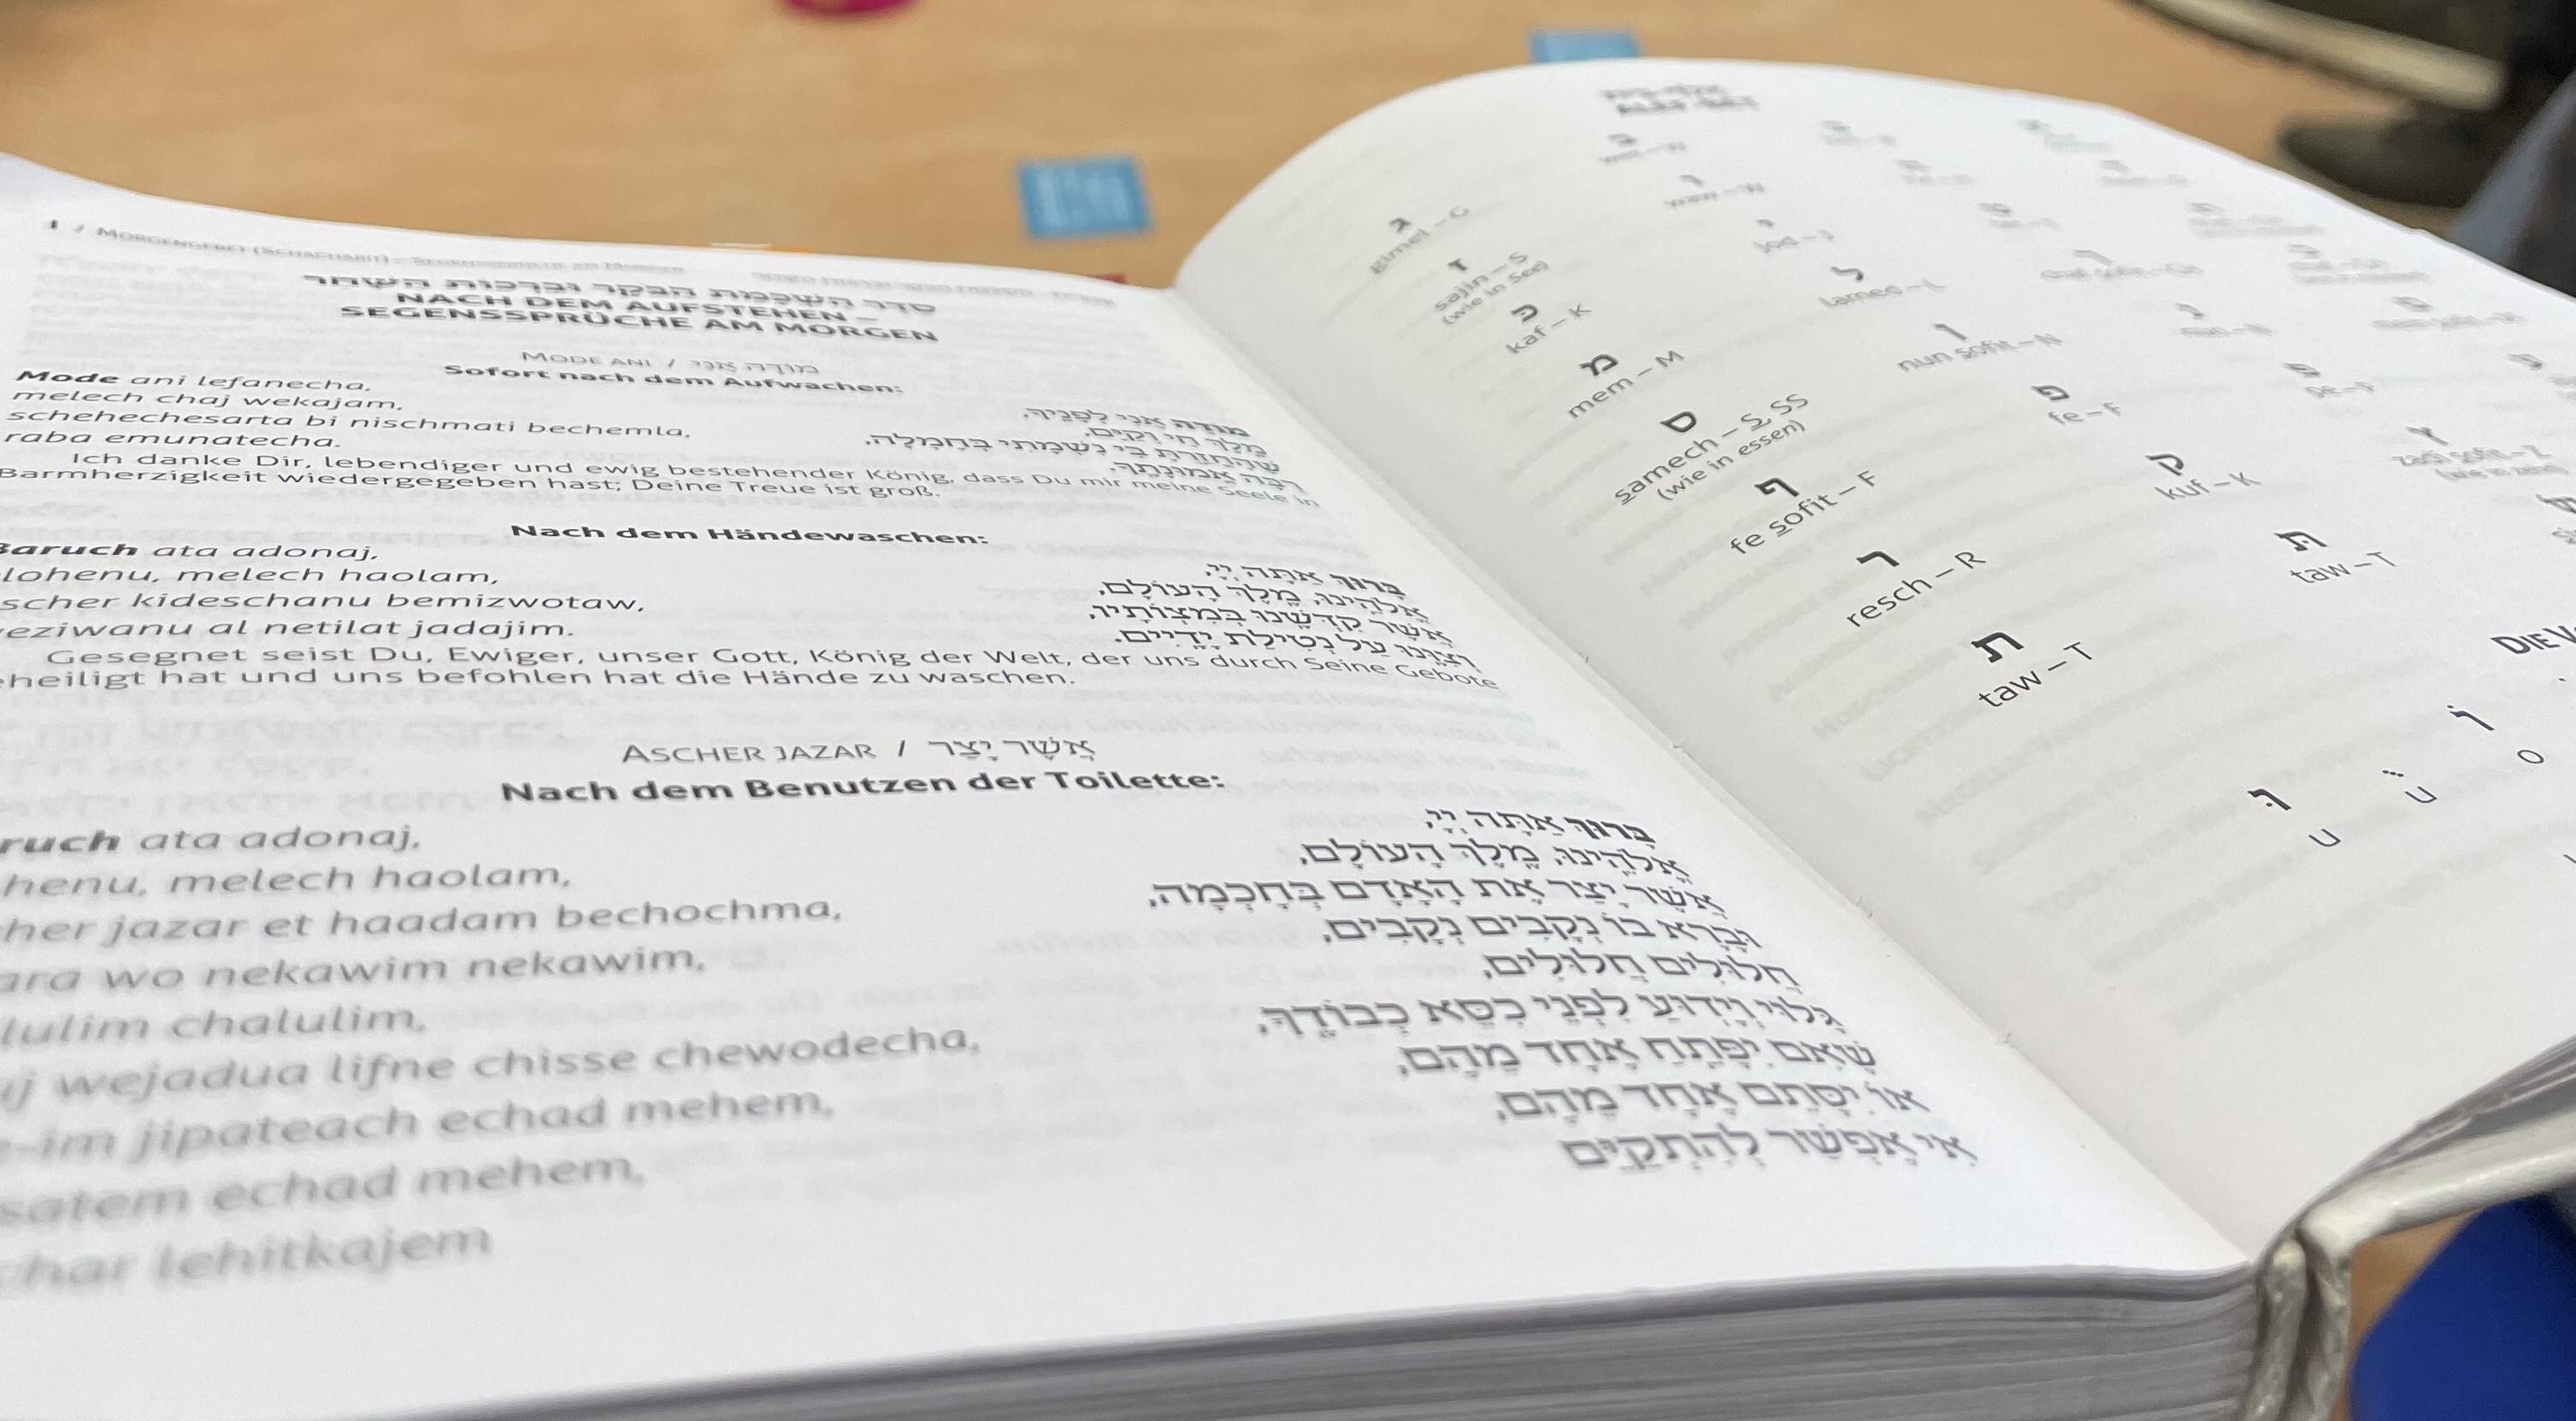 1 / MORGENGEBET (SCHACHARIT) – SEGENSSPRÜCHE AM MORGEN
סדר השכמת הבקר וברכות השחר
NACH DEM AUFSTEHEN –
SEGENSSPRÜCHE AM MORGEN
MODE ANI / מוֹדֶה אֲנִי
Sofort nach dem Aufwachen:
Mode ani lefanecha,
melech chaj wekajam,
schehechesarta bi nischmati bechemla,
raba emunatecha.
מוֹדֶה אֲנִי לְפָנֶיךָ,
מֶלֶךְ חַי וְקַיָּם,
שֶׁהֶחֱזַרְתָּ בִּי נִשְׁמָתִי בְּחֶמְלָה,
רַבָּה אֱמוּנָתֶךָ.
Ich danke Dir, lebendiger und ewig bestehender König, dass Du mir meine Seele in
Barmherzigkeit wiedergegeben hast; Deine Treue ist groß.
Nach dem Händewaschen:
Baruch ata adonaj,
lohenu, melech haolam,
scher kideschanu bemizwotaw,
eziwanu al netilat jadajim.
בָּרוּךְ אַתָּה יְיָ,
אֱלֹהֵֽינוּ, מֶֽלֶךְ הָעוֹלָם,
אֲשֶׁר קִדְּשָֽׁנוּ בְּמִצְוֹתָיו,
וְצִוָּֽנוּ עַל נְטִילַת יָדָֽיִים.
Gesegnet seist Du, Ewiger, unser Gott, König der Welt, der uns durch Seine Gebote
eheiligt hat und uns befohlen hat die Hände zu waschen.
ASCHER JAZAR / אֲשֶׁר יָצַר
Nach dem Benutzen der Toilette:
ruch ata adonaj,
henu, melech haolam,
her jazar et haadam bechochma,
ara wo nekawim nekawim,
lulim chalulim,
uj wejadua lifne chisse chewodecha,
e-im jipateach echad mehem,
satem echad mehem,
char lehitkajem
בָּרוּךְ אַתָּה יְיָ,
אֱלֹהֵֽינוּ, מֶֽלֶךְ הָעוֹלָם,
אֲשֶׁר יָצַר אֶת הָאָדָם בְּחָכְמָה,
וּבָרָא בוֹ נְקָבִים נְקָבִים,
חֲלוּלִים חֲלוּלִים,
גָּלוּי וְיָדֽוּעַ לִפְנֵי כִסֵּא כְבוֹדֶֽךָ,
שֶׁאִם יִפָּתֵֽחַ אֶחָד מֵהֶם,
אוֹ יִסָּתֵם אֶחָד מֵהֶם,
אִי אֶפְשַׁר לְהִתְקַיֵּם
ג
gimel – G
ו
waw – W
ז
sajin – S
(wie in See)
י
jod – J
כּ
kaf – K
ל
lamed – L
מ
mem – M
ן
nun sofit – N
נ
nun – N
ס
samech – S, SS
(wie in essen)
פ
fe – F
פּ
pe – P
ף
fe sofit – F
ק
kuf – K
ץ
zadi sofit – Z
ר
resch – R
תּ
taw – T
ת
taw – T
DIE V
וֹ
o
u
וּ
u